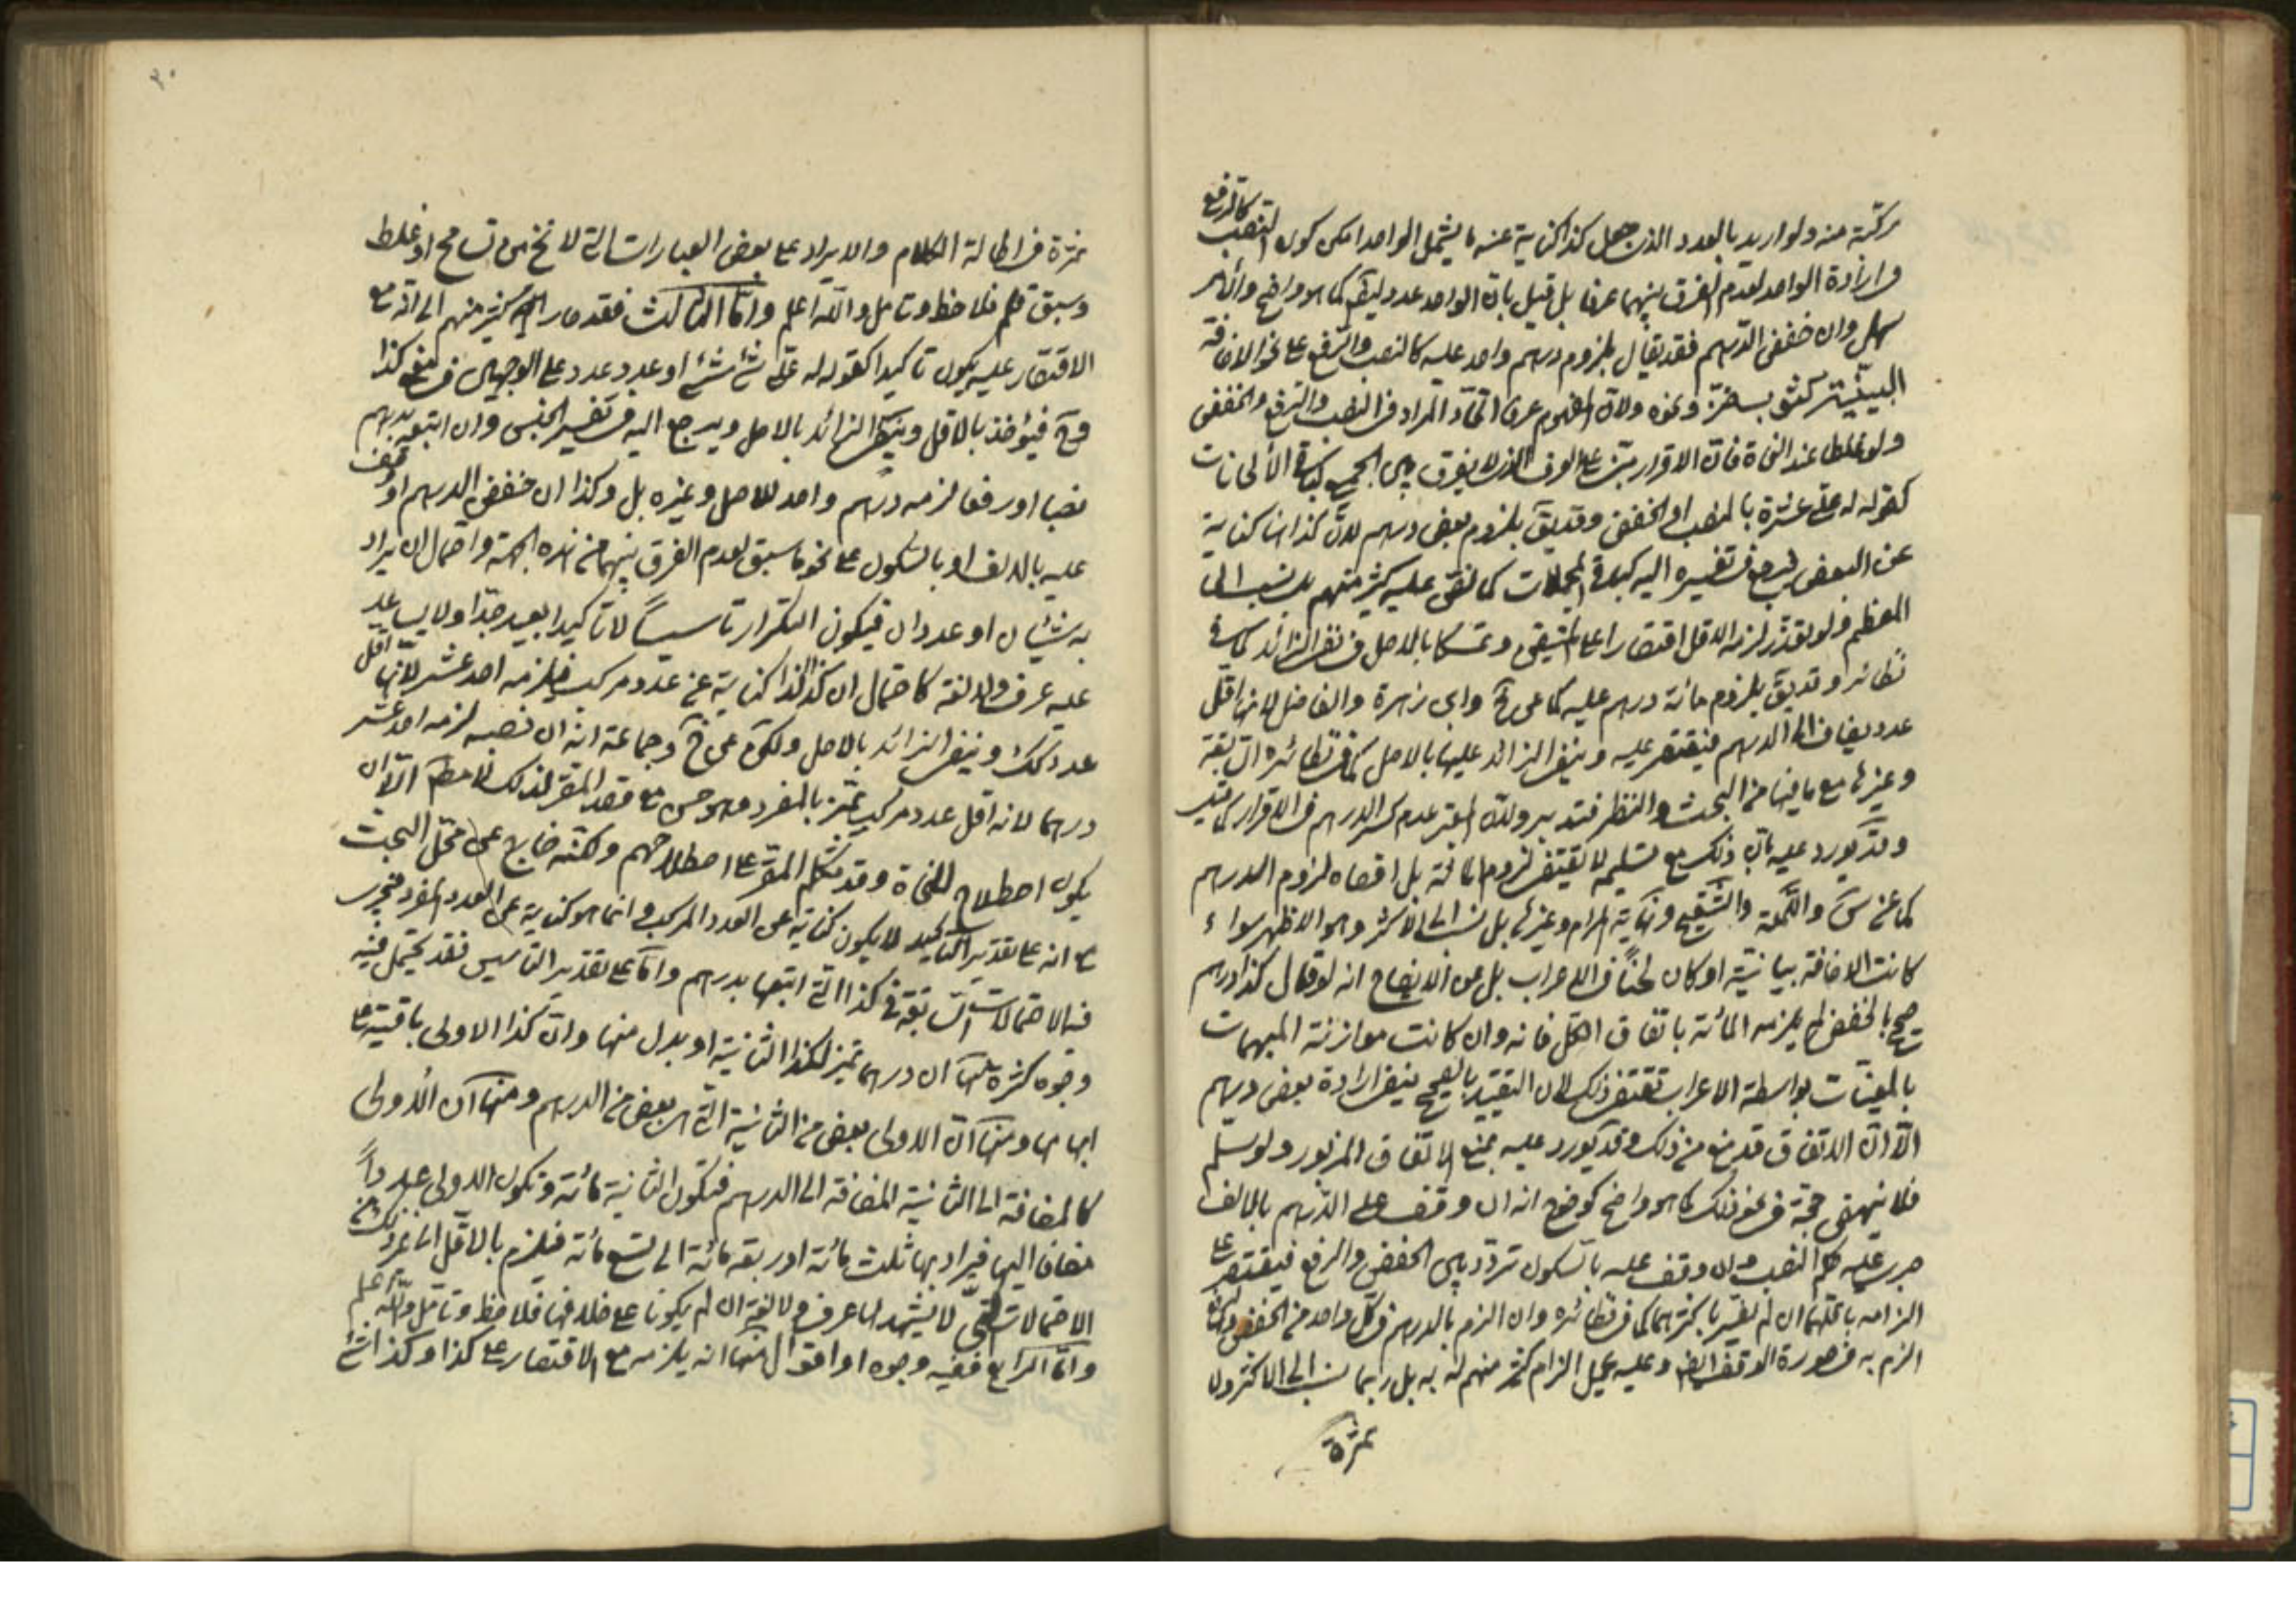 مركبة منه ولو اريد بالعدد الذى جعل كذا كناية عنه ما يشمل الواحد امكن كون النصب كالرفع
وارادة الواحد لعدم الفرق بينهما عرفا بل قيل بان الواحد عدد ايضا كما هو واضح والامر
سهل وان خفض الدرهم فقد يقال بلزوم درهم واحد عليه كالنصب والرفع على نحو الاضافة
البيانية ونحوه ولان المفهوم عرفا اتحاد المراد فى النصب والرفع والخفض
ولو غلطا عند النحاة فان الاقرار على العرف الذى لا يفرق بين الجميع
كقوله له على عشرة بالنصب او الخفض وقد يق بلزوم بعض درهم لان كذا هنا كناية
عن البعض فيرجع فى تفسيره اليه كبقية المجملات كما نص عليه كثير منهم بل نسب الى
المعظم ولو تعذر لزمه الاقل اقتصارا على المتيقن وتمسكا بالاصل فى نفى الزائد كما فى
نظائره وقد يق بلزوم مائة درهم عليه كما عن وابن زهرة والفاضل لانها اقل
عدد يضاف الى الدرهم فيقتصر عليه وينفى الزائد عليها بالاصل كما فى نظائره السابقة
وغيرها مع ما فيها من البحث والنظر فتدبر ولان المعتبر عدم كسر الدرهم فى الاقرار
وقد يورد عليه بان ذلك مع تسليمه لا يقتضى لزوم المائة بل اقصاه لزوم الدرهم
كما عن والتكملة والتنقيح وغاية المرام وغيرها بل نسب الى الاكثر وهو الاظهر سواء
كانت الاضافة بيانية او كان لحنا فى الاعراب بل عن الايضاح انه لو قال كذا درهم
صحيح بالخفض لم يلزمه المائة باتفاق الكل فانه وان كانت موازنة المبهمات
بالمعينات بواسطة الاعراب تقتضى ذلك لان التقييد بالصحيح ينفى ارادة بعض درهم
الا ان الاتفاق قد منع من ذلك وقد يورد عليه بمنع الاتفاق المزبور ولو سلم
فلا ينهض حجة فى نحو ذلك كما هو واضح كوضوح انه ان وقف على الدرهم بالالف
جرى عليه حكم النصب وان وقف عليه بالسكون تردد بين الخفض والرفع فيقتصر على
الزامه باقلهما ان لم يفسر باكثرهما كما فى نظائره وان الزم بالدرهم فى كل واحد من الخفض
الزم به فى صورة الوقف ايضا وعليه يحمل الزام كثير منهم له به بل ربما نسب الى الاكثر ولا
ثمرة
٣٠
ثمرة فى اطالة الكلام والايراد على بعض العبارات التى لا تخ من تسامح او غلط
وسبق قلم فلاحظ وتامل والله اعلم واما الثالث فقد صار اليه كثير منهم الى انه مع
الاقتصار عليه يكون تاكيدا كقوله له على شئ شئ او عدد عدد على الوجهين فى معنى كذا
وح فيؤخذ بالاقل وينفى الزائد بالاصل ويرجع اليه فى تفسير الجنس وان اتبعه بدرهم
نصبا او رفعا لزمه درهم واحد للاصل وغيره بل وكذا ان خفض الدرهم او وقف
عليه بالالف او بالسكون على نحو ما سبق لعدم الفرق بينهما من هذه الجهة واحتمال ان يراد
به شيئان او عددان فيكون التكرار تاسيسا لا تاكيدا بعيد جدا ولا يساعد
عليه عرف ولا لغة كاحتمال ان كذا كذا كناية عن عدد مركب فلزمه احد عشر لانها اقل
عدد كك وينفى الزائد بالاصل ولكن عن وجماعة انه ان نصب لزمه احد عشر
درهما لانه اقل عدد مركب تميز بالمفرد وهو حسن مع قصد المقر لذلك الا ان
يكون اصطلاح للنحاة وقد تكلم المقر على اصطلاحهم ولكنه خارج عن محل البحث
مع انه على تقدير التاكيد لا يكون كناية عن العدد المركب وانما هو كناية عن العدد المفرد فيجرى
فيه الاحتمالات السابقة فى كذا التى اتبعها بدرهم واما على تقدير التاسيس فقد يحتمل فيه
وجوه كثيرة منها ان درهما تميز لكذا الثانية او بدل منها وان كذا الاولى باقية على
ابهامها ومنها ان الاولى بعض من الثانية التى هى بعض من الدرهم ومنها ان الاولى
كالمضافة الى الثانية المضافة الى الدرهم فتكون الثانية مائة وتكون الاولى عددا
مضافا اليها فيراد بها ثلث مائة او اربعة مائة الى تسع مائة فيلزم بالاقل الى غير ذلك من
الاحتمالات التى لا يشهد لها عرف ولا لغة ان لم يكونا على خلافها فلاحظ وتامل والله اعلم
واما الرابع ففيه وجوه او اقوال منها انه يلزمه مع الاقتصار على كذا وكذا شئ